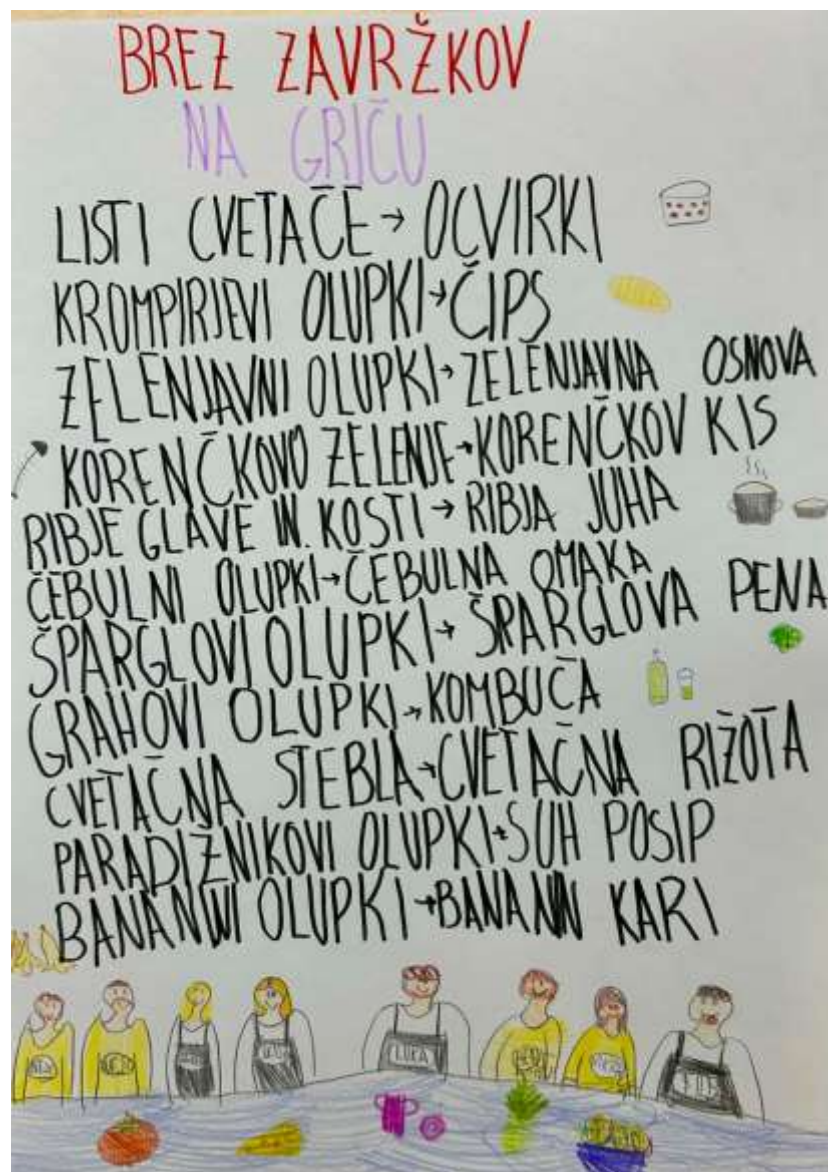 BREZ ZAVRŽKOV
NA GRIČU
LISTI CVETAČE → OCVIRKI
KROMPIRJEVI OLUPKI → ČIPS
ZELENJAVNI OLUPKI → ZELENJAVNA OSNOVA
KORENČKOVO ZELENJE → KORENČKOV KIS
RIBJE GLAVE IN KOSTI → RIBJA JUHA
ČEBULNI OLUPKI → ČEBULNA OMAKA
ŠPARGLOVI OLUPKI → ŠPARGLOVA PENA
GRAHOVI OLUPKI → KOMBUČA
CVETAČNA STEBLA → CVETAČNA RIŽOTA
PARADIŽNIKOVI OLUPKI → SUH POSIP
BANANINI OLUPKI → BANANIN KARI
LUKA